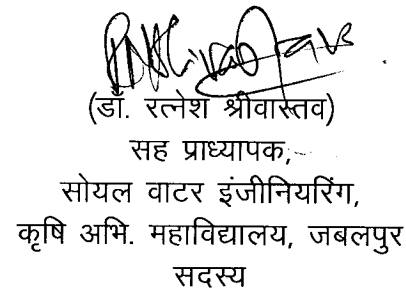 (डॉ. रत्नेश श्रीवास्तव)
सह प्राध्यापक,
सोयल वाटर इंजीनियरिंग,
कृषि अभि. महाविद्यालय, जबलपुर
सदस्य